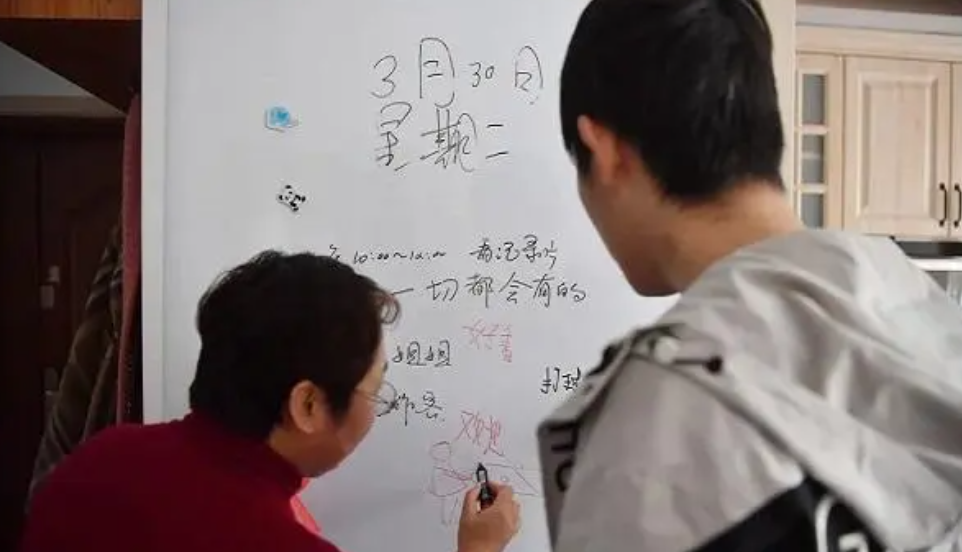 3月30日
星期二
10:00~12:00 看记录片
一切都会有的
好看
姐姐
打球
欢迎